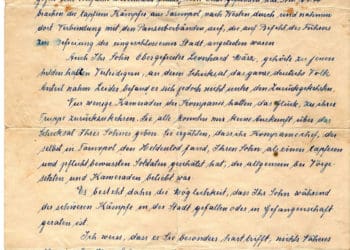 brachen die tapfern Kämpfer aus Tarnopol nach Westen durch und nahmen
dort Verbindung mit den Panzerverbänden auf, die auf Befehl des Führers
zur Befreiung der eingeschlossenen Stadt angetreten waren.
Auch Ihr Sohn Obergefreiter Leonhard März, gehörte zu jenen
heldenhaften Verteidigern, an deren Schicksal das ganze deutsche Volk
Anteil nahm. Leider befand er sich jedoch nicht unter den Zurückgekehrten.
Nur wenige Kameraden der Kompanie hatten das Glück, zu ihrer
Truppe zurückzukehren. Sie alle konnten mir keine Auskunft über das
Schicksal Ihres Sohnes geben. Sie erzählten, dass ihr Kompaniechef, der
selbst in Tarnopol den Heldentod fand, Ihren Sohn als einen tapferen
und pflichtbewussten Soldaten geschätzt hat, der allgemein bei Vorge-
setzten und Kameraden beliebt war.
Es besteht daher die Möglichkeit, dass Ihr Sohn während
der schweren Kämpfe in der Stadt gefallen oder in Gefangenschaft
geraten ist.
Ich weiss, dass es Sie besonders hart trifft, nichts Näheres